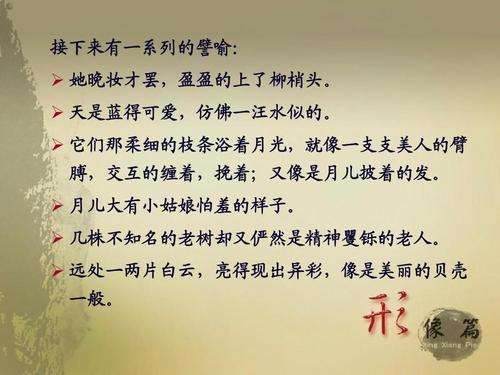 接下来有一系列的譬喻:
她晚妆才罢，盈盈的上了柳梢头。
天是蓝得可爱，仿佛一汪水似的。
它们那柔细的枝条浴着月光，就像一支支美人的臂
膊，交互的缠着，挽着；又像是月儿披着的发。
月儿大有小姑娘怕羞的样子。
几株不知名的老树却又俨然是精神矍铄的老人。
远处一两片白云，亮得现出异彩，像是美丽的贝壳
一般。
形 像 篇
Xing Xiang Pian